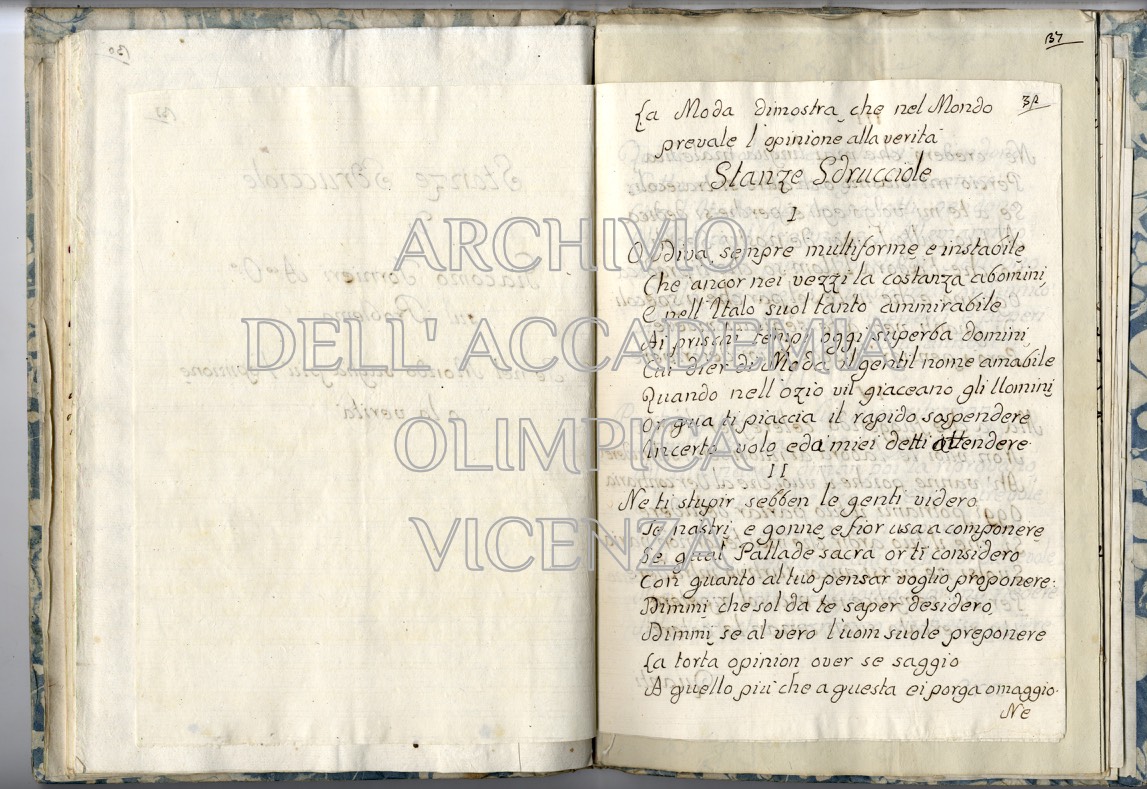 137
32
La Moda dimostra, che nel Mondo
prevale l'opinione alla verità
Stanze Sdrucciole
I
O Diva, sempre multiforme e instabile
Che ancor nei vezzi la costanza abomini,
E nell'Italo suol tanto ammirabile
Ai prischi tempi oggi superba domini,
Cui dier di Moda il gentil nome amabile
Quando nell'ozio vil giaceano gli Uomini
Or qua ti piaccia il rapido sospendere
Incerto volo, e da' miei detti attendere.
II
Ne ti stupir sebben le genti videro
Te nastri, e gonne, e fior usa a componere
Se qual Pallade sacra or ti considero
Con quanto al tuo pensar voglio proponere:
Dimmi, che sol da te saper desidero,
Dimmi, se al vero l'uom suole preponere
La torta opinion over se saggio
A quello più che a questa ei porga omaggio.
Ne
ARCHIVIO
DELL' ACCADEMIA
OLIMPICA
VICENZA